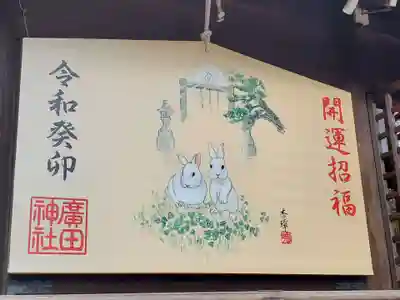 開運招福
令和癸卯
廣田
神社